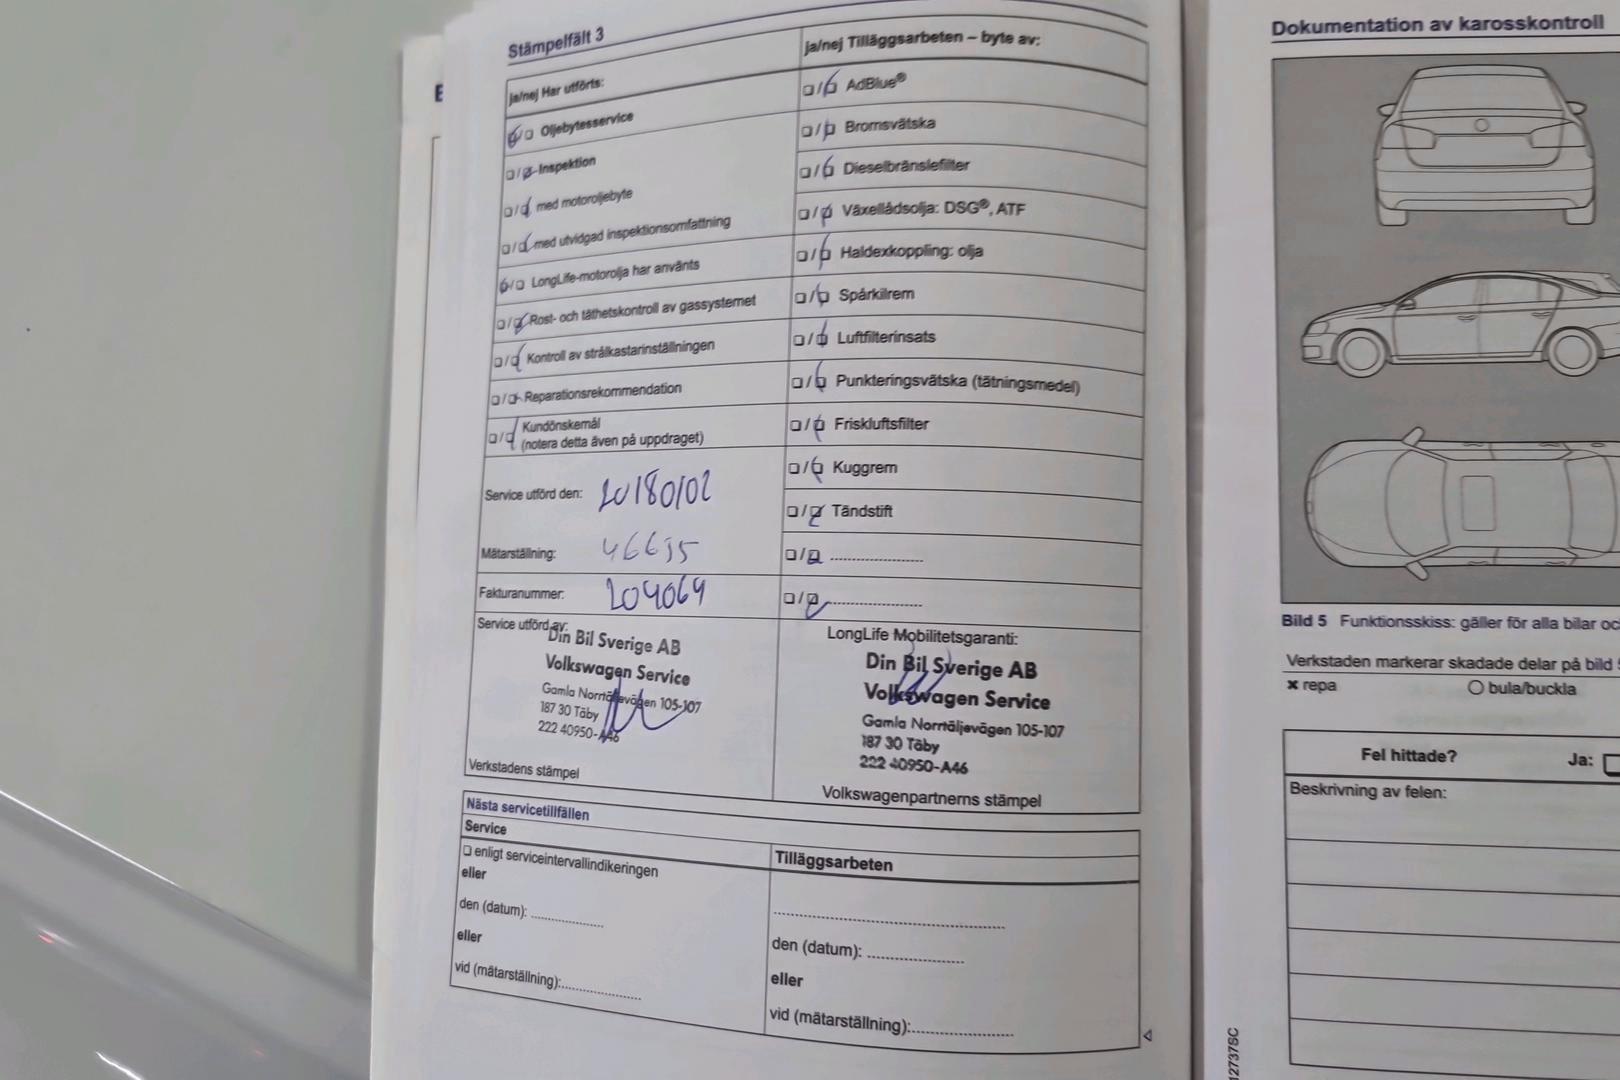 Stämpelfält 3
ja/nej Har utförts:
❑/❑ Oljebytesservice
❑/❑ Inspektion
❑/❑ med motoroljebyte
❑/❑ med utvidgad inspektionsomfattning
❑/❑ LongLife-motorolja har använts
❑/❑ Rost- och täthetskontroll av gassystemet
❑/❑ Kontroll av strålkastarinställningen
❑/❑ Reparationsrekommendation
❑/❑ Kundönskemål
(notera detta även på uppdraget)
Service utförd den: 20180102
Mätarställning: 46635
Fakturanummer: 204064
Service utförd av:
Din Bil Sverige AB
Volkswagen Service
Gamla Norrtäljevägen 105-107
187 30 Täby
222 40950-A46
Verkstadens stämpel
ja/nej Tilläggsarbeten – byte av:
❑/❑ AdBlue®
❑/❑ Bromsvätska
❑/❑ Dieselbränslefilter
❑/❑ Växellådsolja: DSG®, ATF
❑/❑ Haldexkoppling: olja
❑/❑ Spårkilrem
❑/❑ Luftfilterinsats
❑/❑ Punkteringsvätska (tätningsmedel)
❑/❑ Friskluftsfilter
❑/❑ Kuggrem
❑/❑ Tändstift
❑/❑ ......................
❑/❑ ......................
LongLife Mobilitetsgaranti:
Din Bil Sverige AB
Volkswagen Service
Gamla Norrtäljevägen 105-107
187 30 Täby
222 40950-A46
Volkswagenpartnerns stämpel
Nästa servicetillfällen
Service
❑ enligt serviceintervallindikeringen
eller
den (datum): ..................
eller
vid (mätarställning):....................
Tilläggsarbeten
..................................................
den (datum): .....................
eller
vid (mätarställning):......................
Dokumentation av karosskontroll
Bild 5 Funktionsskiss: gäller för alla bilar
Verkstaden markerar skadade delar på bild
✖ repa
○ bula/buckla
Fel hittade?
Ja: ❑
Beskrivning av felen:
12737SC